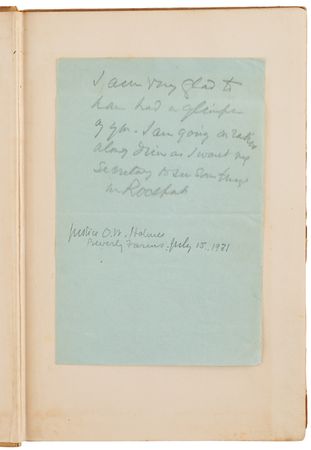 I am very glad to
have had a glimpse
of you. I am going on rather
along Drive as I want my
Secretary to see some things
in Rockport
Justice O. W. Holmes
Beverly Farms. July 15, 1921